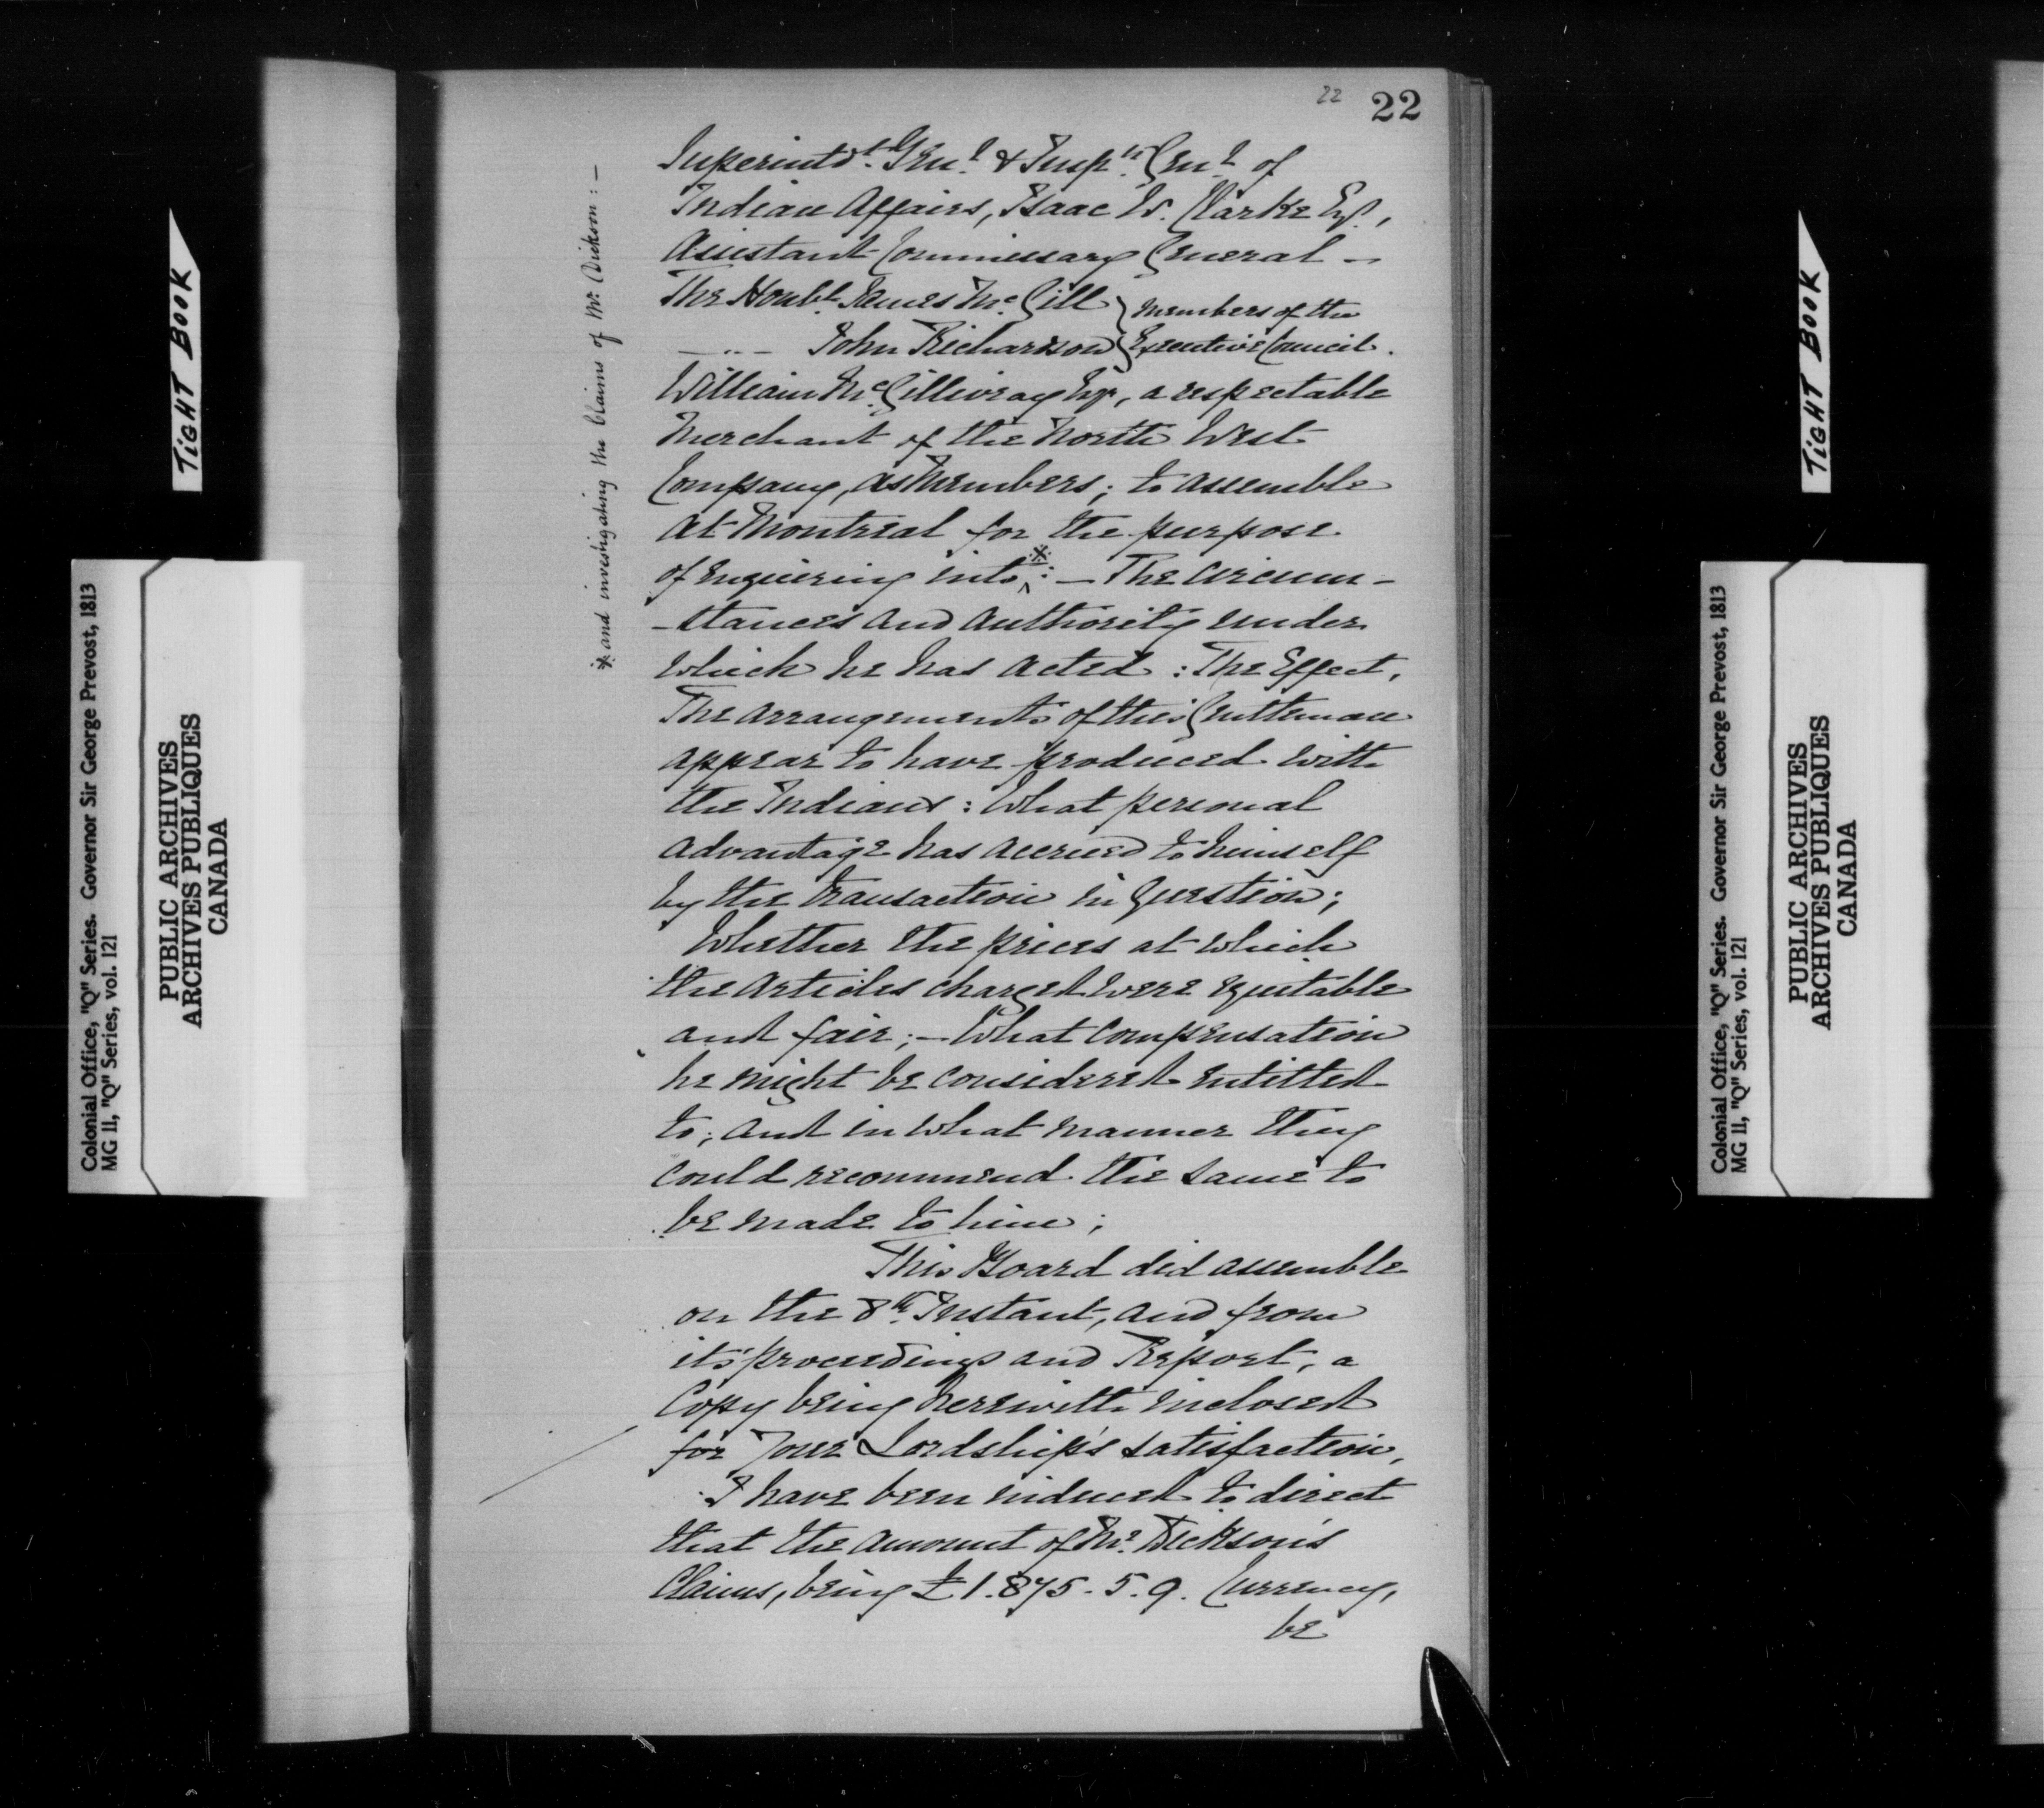 22 22
Superintdt. Genl. & Inspr. Genl. of
Indian Affairs, Isaac W. Clarke Esqr.,
Assistant Commissary General –
The Honble. James McGill } Members of the
– " – John Richardson } Executive Council.
William McGillivray Esqr., a respectable
Merchant of the North West
Company, as Members; to assemble
at Montreal for the purpose
of enquiring into ※ : – The circum-
-stances and authority under
which he has acted : The Effect,
The arrangements of this Gentleman
appear to have produced with
the Indians : What personal
advantage has accrued to himself
by the transaction in Question;
Whether the prices at which
the articles charged were equitable
and fair; – What compensation
he might be considered entitled
to; and in what manner they
could recommend the same to
be made to him;
This Board did assemble
on the 8th. Instant, and from
its proceedings and Report, a
Copy being herewith inclosed
for Your Lordship's satisfaction,
I have been induced to direct
that the amount of Mr. Dickson's
Claims, being £1.875. 5. 9. Currency,
be
※ and investigating the claims of Mr. Dickson : –
TIGHT BOOK
Colonial Office, "Q" Series. Governor Sir George Prevost, 1813
MG 11, "Q" Series, vol. 121
PUBLIC ARCHIVES
ARCHIVES PUBLIQUES
CANADA
TIGHT BOOK
Colonial Office, "Q" Series. Governor Sir George Prevost, 1813
MG 11, "Q" Series, vol. 121
PUBLIC ARCHIVES
ARCHIVES PUBLIQUES
CANADA